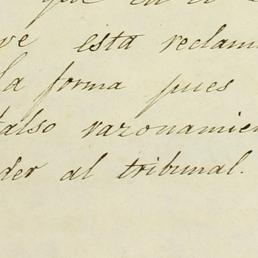 que en el
ve esta reclam
la forma pues
falso razonamien
der al tribunal.